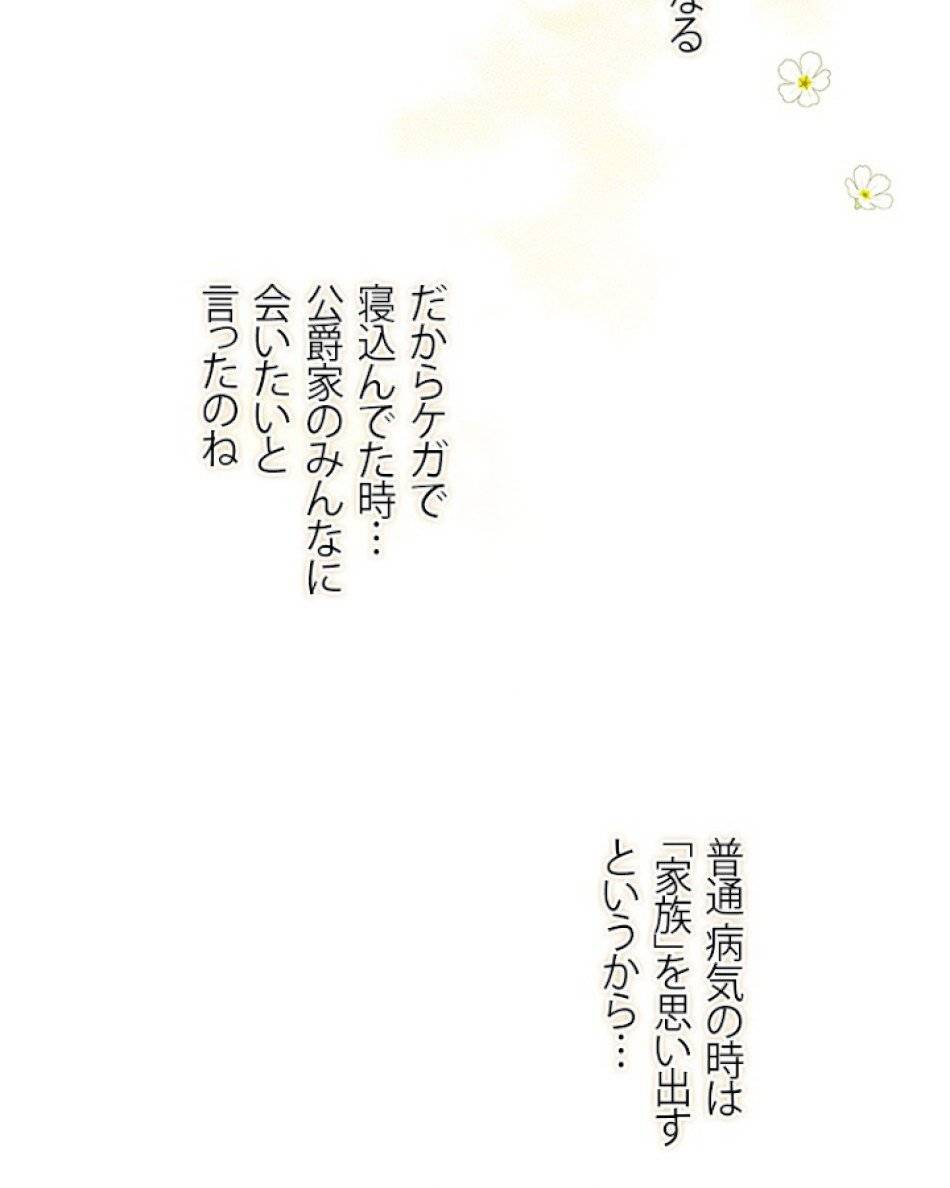 なる
だからケガで
寝込んでた時…
公爵家のみんなに
会いたいと
言ったのね
普通 病気の時は
「家族」を思い出す
というから…